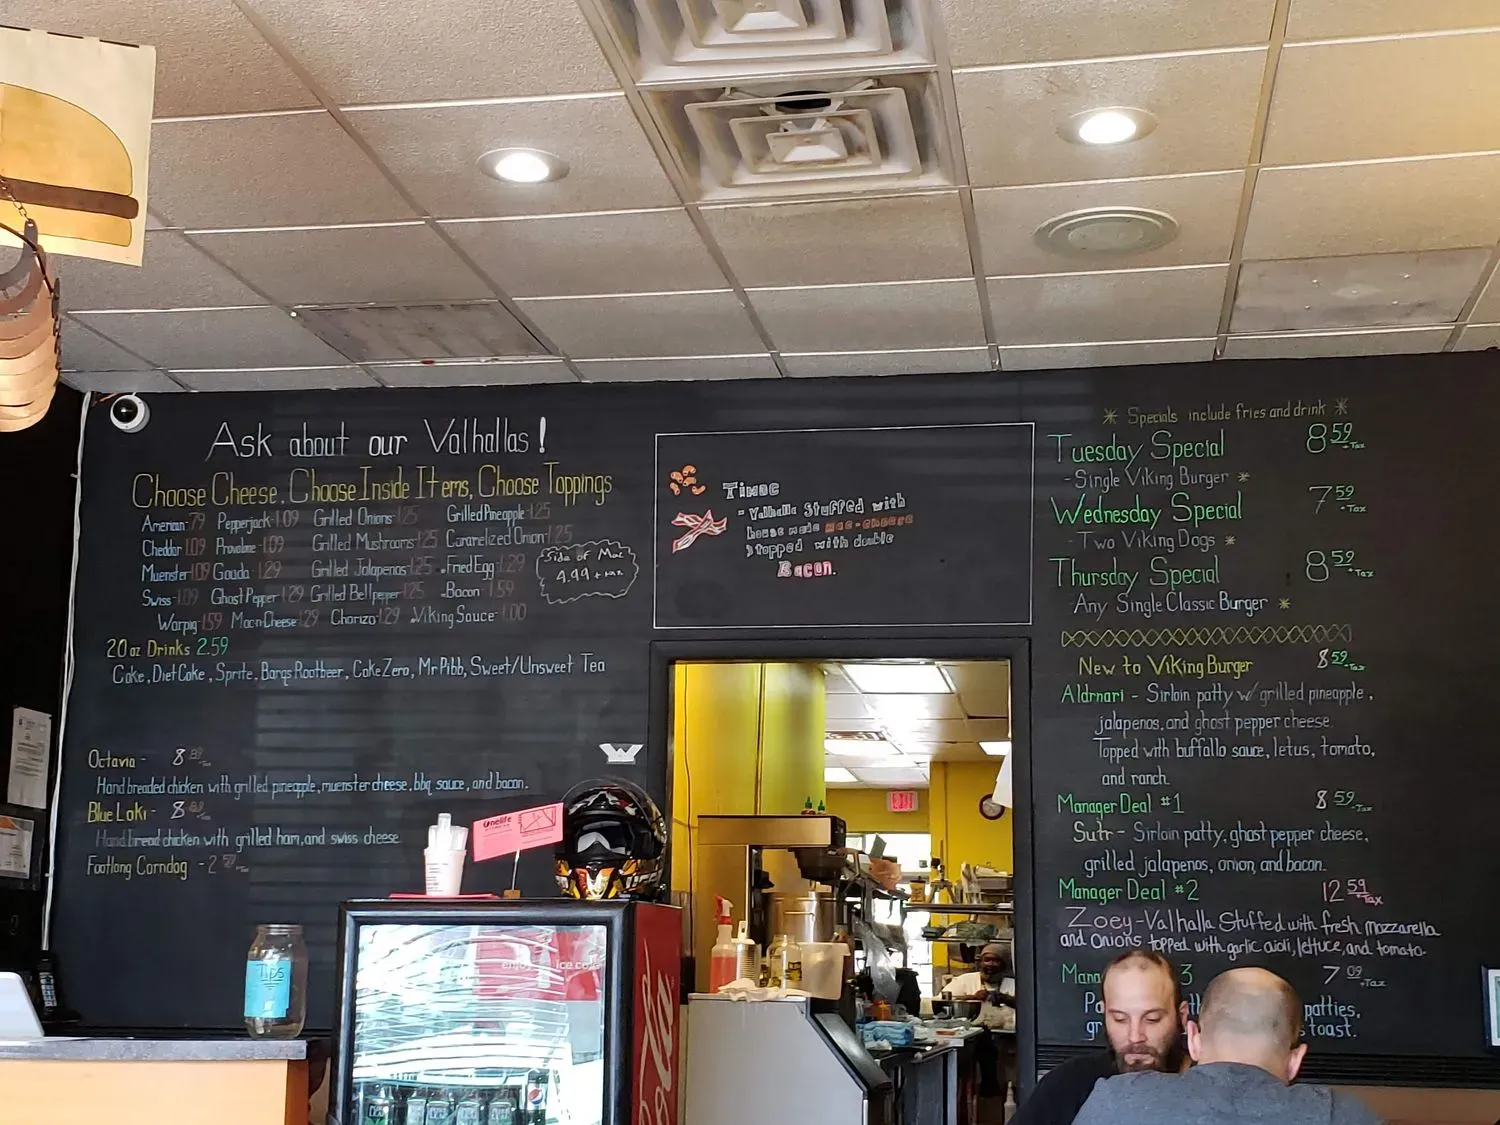 Ask about our Valhallas!
Choose Cheese, Choose Inside Items, Choose Toppings
American .79 Pepperjack 1.09 Grilled Onions 1.25 Grilled Pineapple 1.25
Cheddar 1.09 Provolone 1.09 Grilled Mushrooms 1.25 Caramelized Onion 1.25
Muenster 1.09 Gouda 1.29 Grilled Jalapenos 1.25 Fried Egg 1.29
Swiss 1.09 Ghost Pepper 1.29 Grilled Bellpepper 1.25 Bacon 1.59
Warpig 1.59 Mac n Cheese 1.29 Chorizo 1.29 Viking Sauce 1.00
Side of Mac
4.99 + tax
20 oz Drinks 2.59
Coke, Diet Coke, Sprite, Barqs Rootbeer, Coke Zero, Mr Pibb, Sweet/Unsweet Tea
Octavia - 8
Hand breaded chicken with grilled pineapple, muenster cheese, bbq sauce, and bacon.
Blue Loki - 8
Hand bread chicken with grilled ham, and swiss cheese
Footlong Corndog - 2
Timac
- Valhalla Stuffed with
house made mac-cheese
topped with double
Bacon.
* Specials include fries and drink *
Tuesday Special 8.59 + Tax
- Single Viking Burger *
Wednesday Special 7.59 + Tax
- Two Viking Dogs *
Thursday Special 8.59 + Tax
- Any Single Classic Burger *
New to Viking Burger 8.59 + Tax
Aldrnari - Sirloin patty w/ grilled pineapple,
jalapenos, and ghost pepper cheese.
Topped with buffallo sauce, letus, tomato,
and ranch.
Manager Deal #1 8.59 + Tax
Sutr - Sirloin patty, ghost pepper cheese,
grilled jalapenos, onion, and bacon.
Manager Deal #2 12.59 + Tax
Zoey - Valhalla Stuffed with fresh mozzarella
and onions topped with garlic aioli, lettuce, and tomato.
Mana 3 7.09 + Tax
patties,
toast.
Onelife
Tips
enjoy ice cold